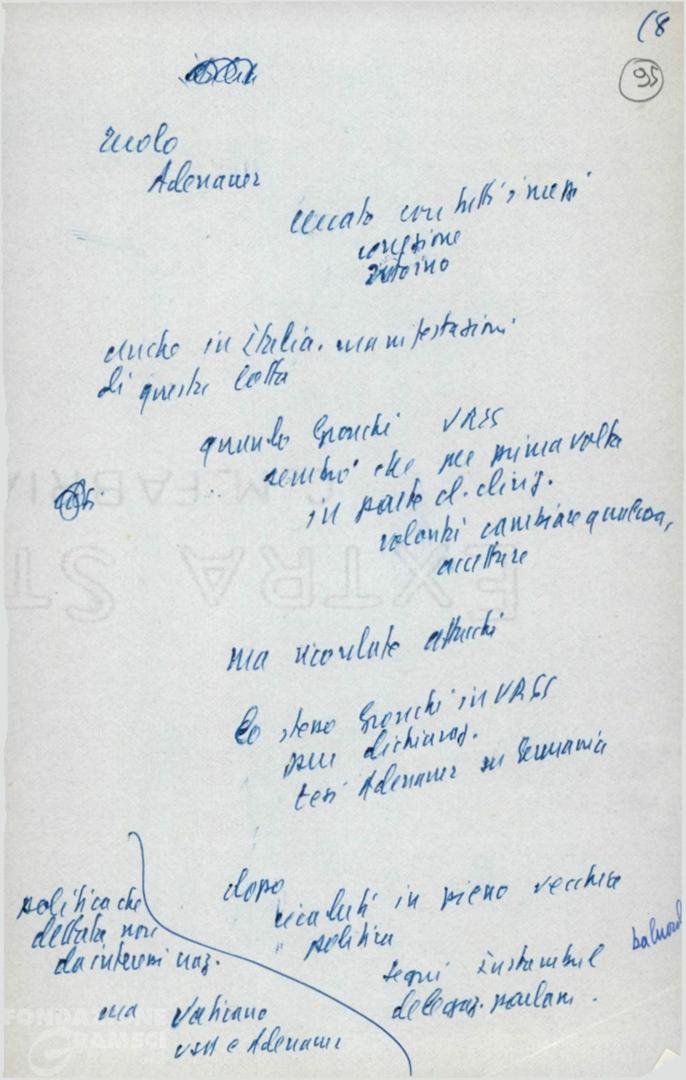 18
95
ruolo
Adenauer
cercato con tutti i mezzi
coesione
intorno
anche in Italia. manifestazioni
di questa lotta
quando Gronchi URSS
sembrò che per prima volta
in parte d. dirig.
volontà cambiare qualcosa,
accettare
ma ricordate attacchi
lo stesso Gronchi in URSS
sue dichiaraz.
tesi Adenauer su Germania
dopo
ricaduti in pieno vecchia
politica
segui Instambul
delegaz. parlam.
politica che
dettata non
da interessi naz.
ma Vaticano
USA e Adenauer
FONDAZIONE
GRAMSCI